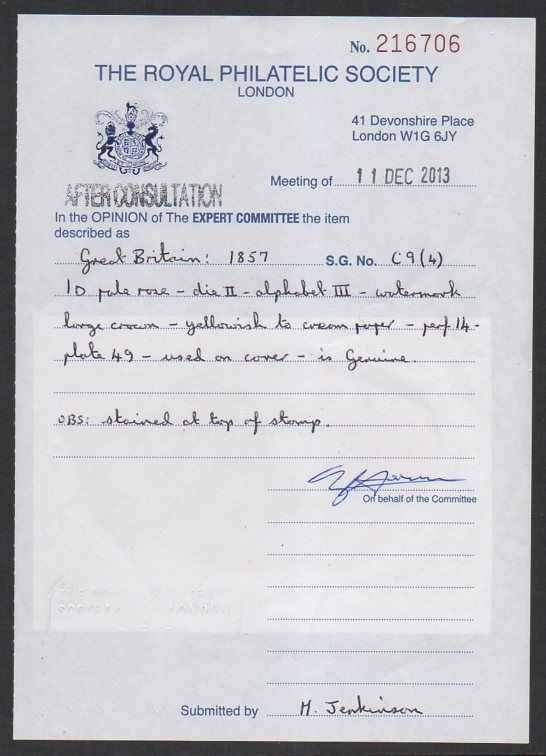 No. 216706
THE ROYAL PHILATELIC SOCIETY
LONDON
41 Devonshire Place
London W1G 6JY
Meeting of 11 DEC 2013
AFTER CONSULTATION
In the OPINION of The EXPERT COMMITTEE the item
described as
Great Britain: 1857 S.G. No. C9(4)
1D pale rose - die II - alphabet III - watermark
large crown - yellowish to cream paper - perf 14 -
plate 49 - used on cover - is Genuine.
OBS: stained at top of stamp.
On behalf of the Committee
SOCIETY LONDON
Submitted by M. Jenkinson